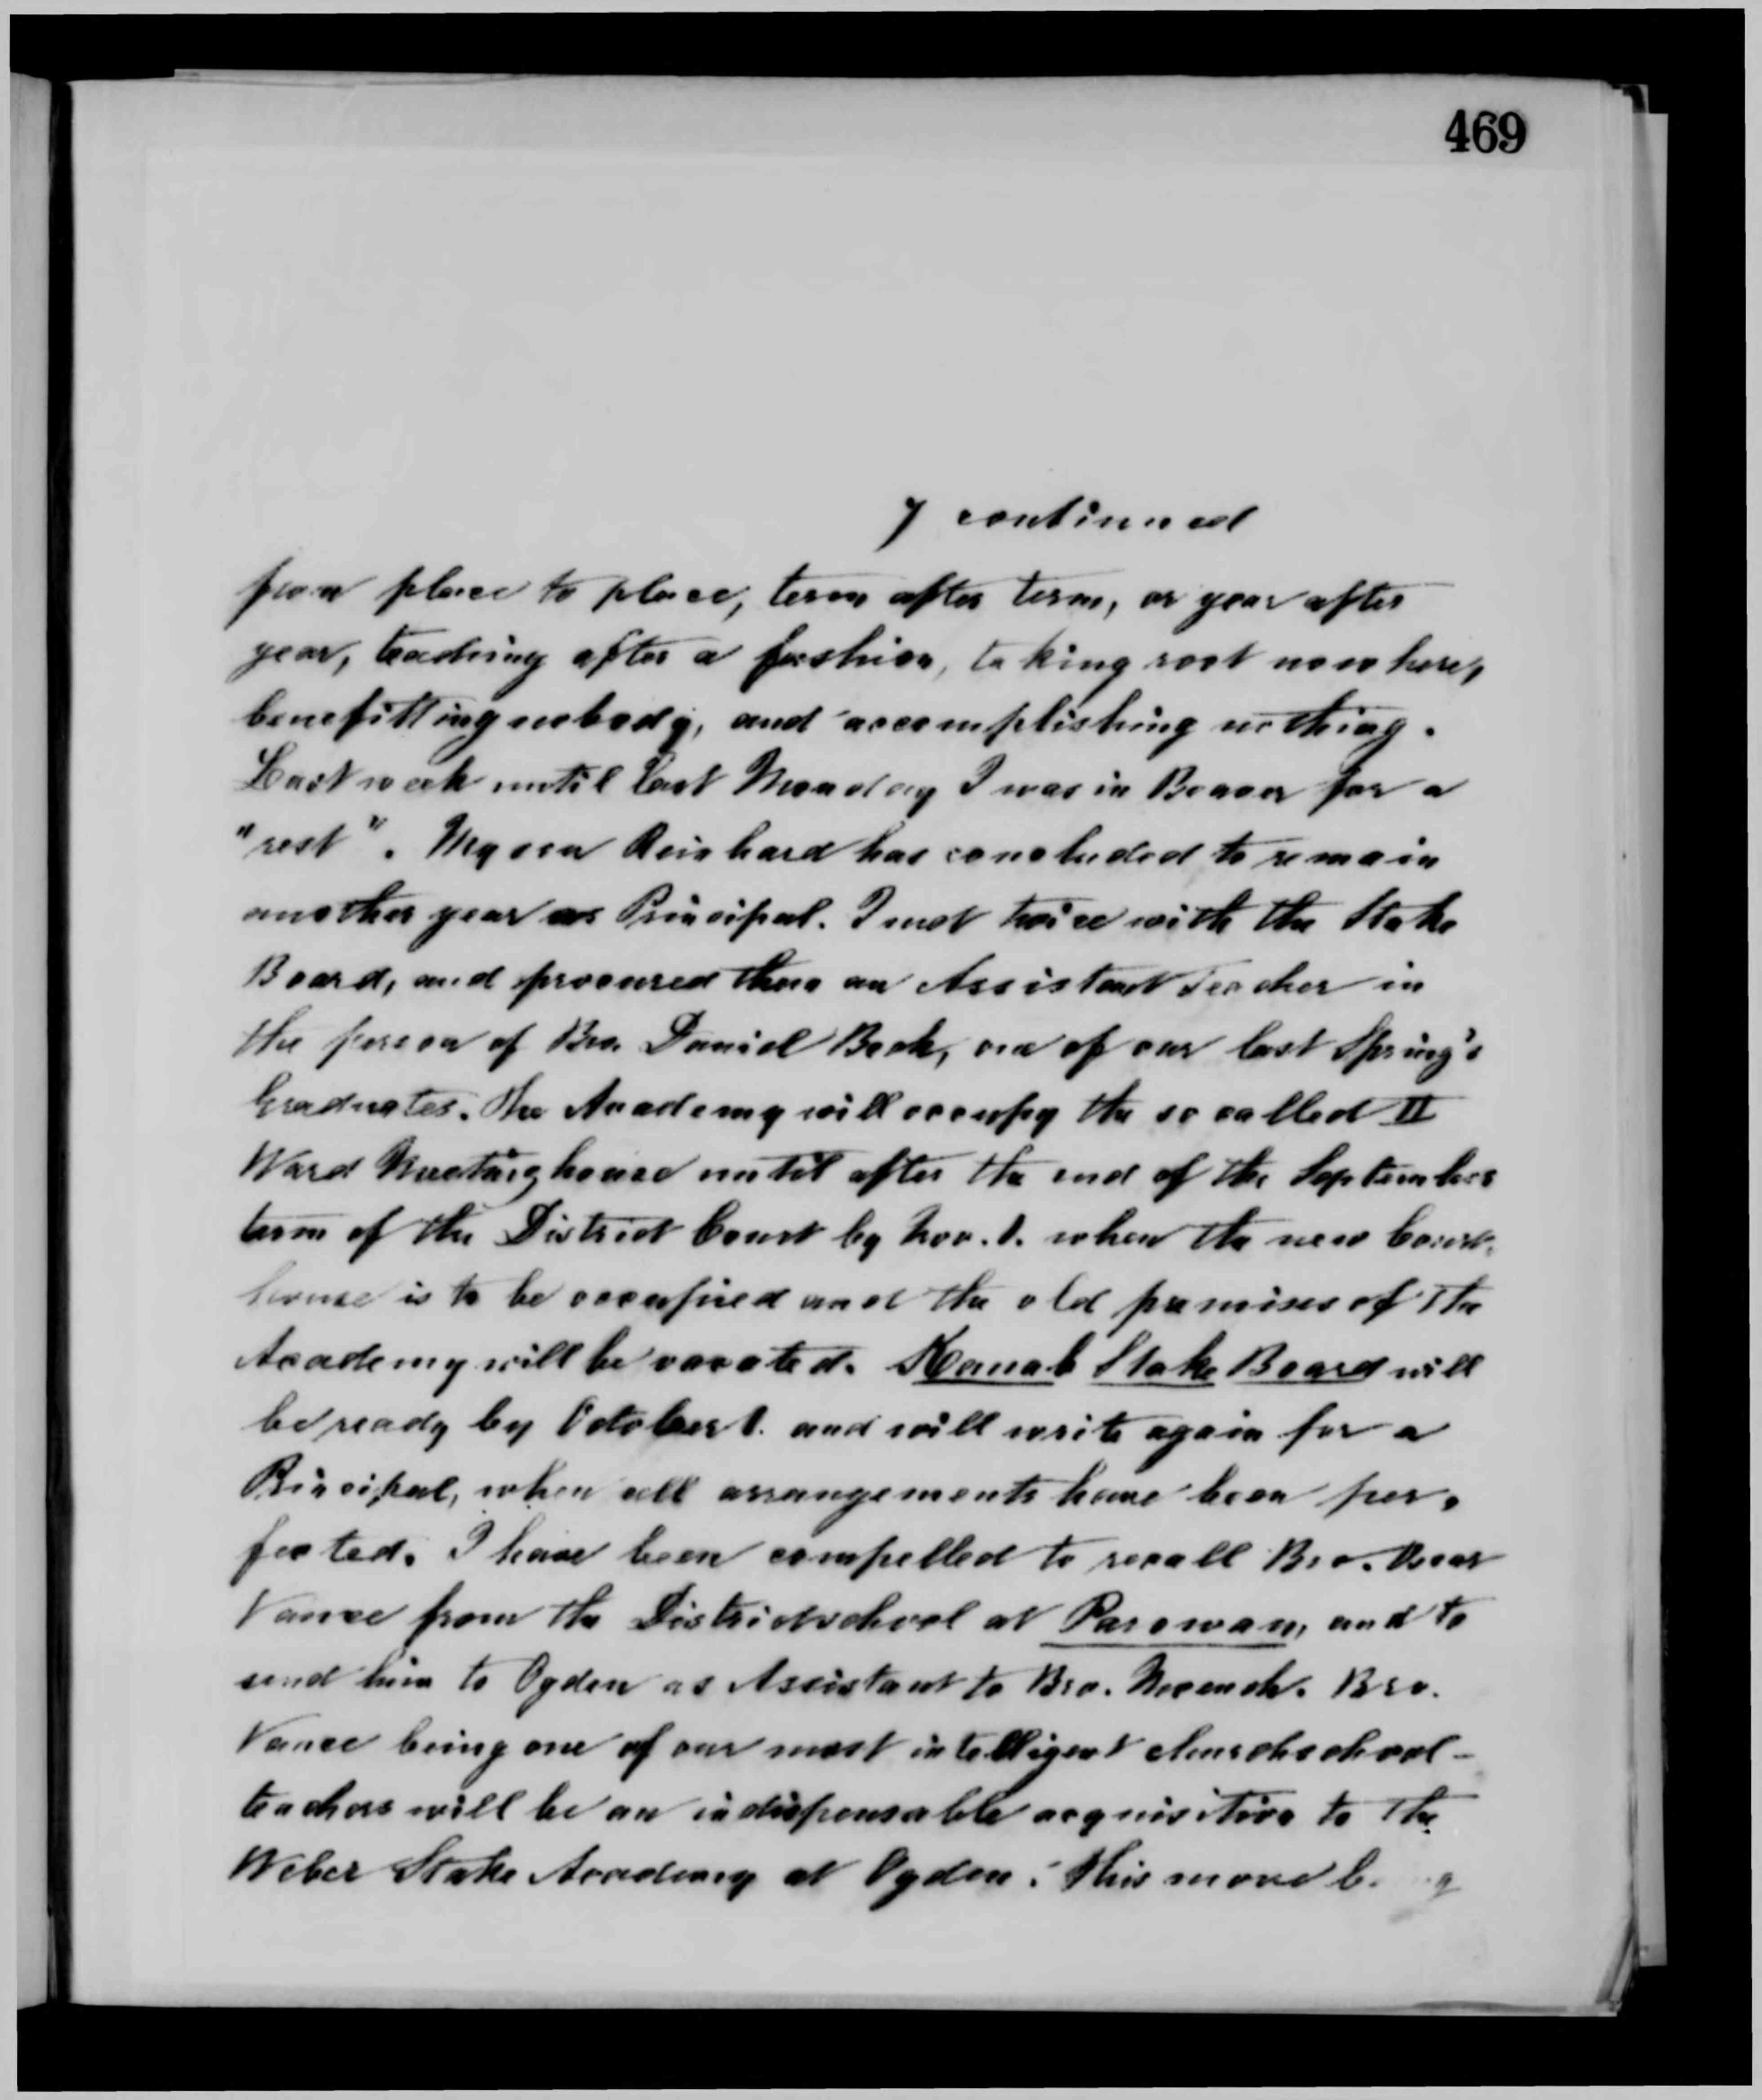 469
7 continued
from place to place, term after term, or year after
year, teaching after a fashion, taking root nowhere,
benefitting nobody, and accomplishing nothing.
Last week until last Monday I was in Beaver for a
"rest". My son Reinhard has concluded to remain
another year as Principal. I met twice with the Stake
Board, and procured them an Assistant Teacher in
the person of Bro. Daniel Beck, one of our last Spring's
Graduates. The Academy will occupy the so called II
Ward Meetinghouse until after the end of the September
term of the District Court by Nov. 1. when the new Court-
house is to be occupied and the old premises of the
Academy will be vacated. Kanab Stake Board will
be ready by October 1. and will write again for a
Principal, when all arrangements have been per-
fected. I have been compelled to recall Bro. Oscar
Vance from the Districtschool at Parowan, and to
send him to Ogden as Assistant to Bro. Moench. Bro.
Vance being one of our most intelligent churchschool-
teachers will be an indispensable acquisition to the
Weber Stake Academy at Ogden. This move